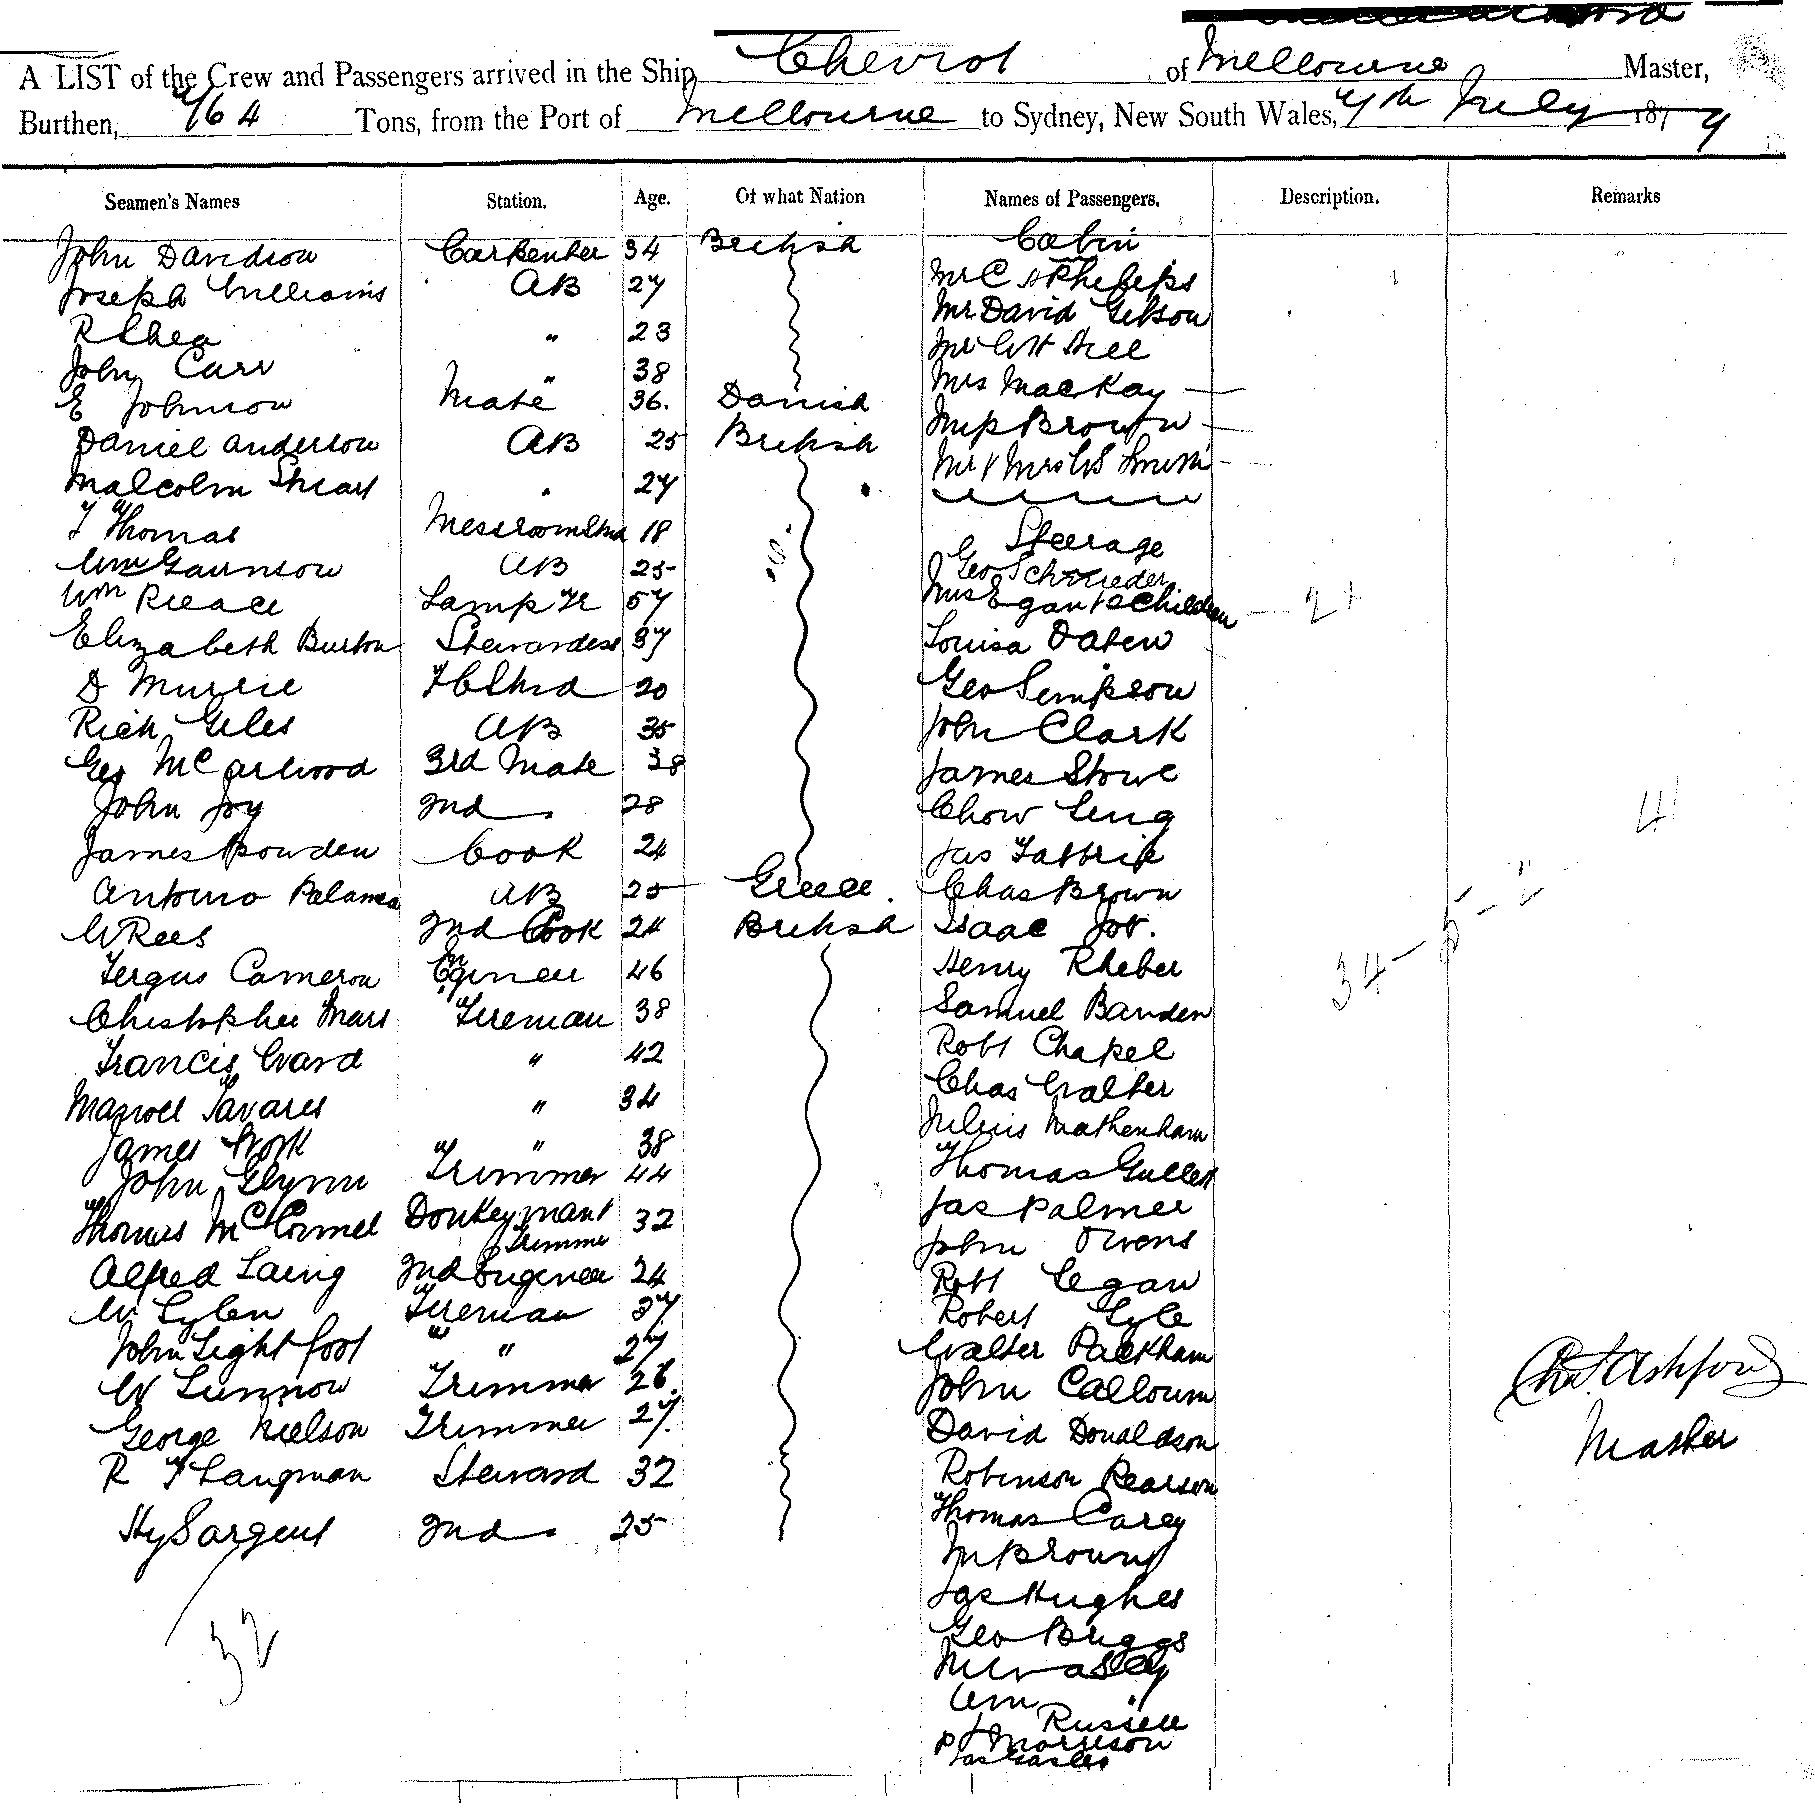 A LIST of the Crew and Passengers arrived in the Ship Cheviot of Melbourne Master,
Burthen, 764 Tons, from the Port of Melbourne to Sydney, New South Wales, 7th July 1879
Seamen's Names Station. Age. Of what Nation Names of Passengers. Description. Remarks
John Davidson Carpenter 34 British Cabin
Joseph Williams AB 27 Mr C Phelps
R Shea " 23 Mr David Gibson
John Carr " 38 Mr Hill
E Johnson Mate 36. Danish Mrs Mackay
Daniel Anderson AB 25 British Brown
Malcolm Stuart " 27 Mr & Mrs Smith
T Thomas Messroom Stwd 18 Steerage
Wm Gaunson AB 25 Geo Schroeder
Wm Pleace Lamp Tr 57 Mrs Egan & 2 Children 2+
Elizabeth Burton Stewardess 37 Louisa Daten
D Murrie FC Stwd 20 Geo Simpson
Rich Giles AB 35 John Clark
Geo McArwood 3rd Mate 38 James Stowe
John Joy 2nd " 28 Chow Ling 4
James Bowden Cook 24 Jas
Antonio Palamea AB 25 Greece. Chas Brown
W Rees 2nd Cook 24 British Isaac
Fergus Cameron Engineer 46 Henry Rheber 34 - 5 - 2
Christopher Mars Fireman 38 Samuel Banden
Francis Ward " 42 Robt Chapel
Tavares " 34 Chas Walter
James Work " " 38 Julius Mathenham
John Glynn Trimmer 44 Thomas Gullett
Thomas McCormel Donkeyman & Trimmer 32 Jas Palmer
John Owens
Alfred Laing 2nd Engineer 24 Robt Egan
W Sylen Fireman 37 Robert Lyle
John Lightfoot " " 27 Walter Packham
W Lunnow Trimmer 26. John Calloum
George Neilson Trimmer 27. David Donaldson
R T Langman Steward 32 Robinson Pearson
Hy Sargent 2nd " 25 Thomas Carey
32
Jas Hughes
Geo Briggs
Wm
Russell
Morrison
Chas Ashford
Master